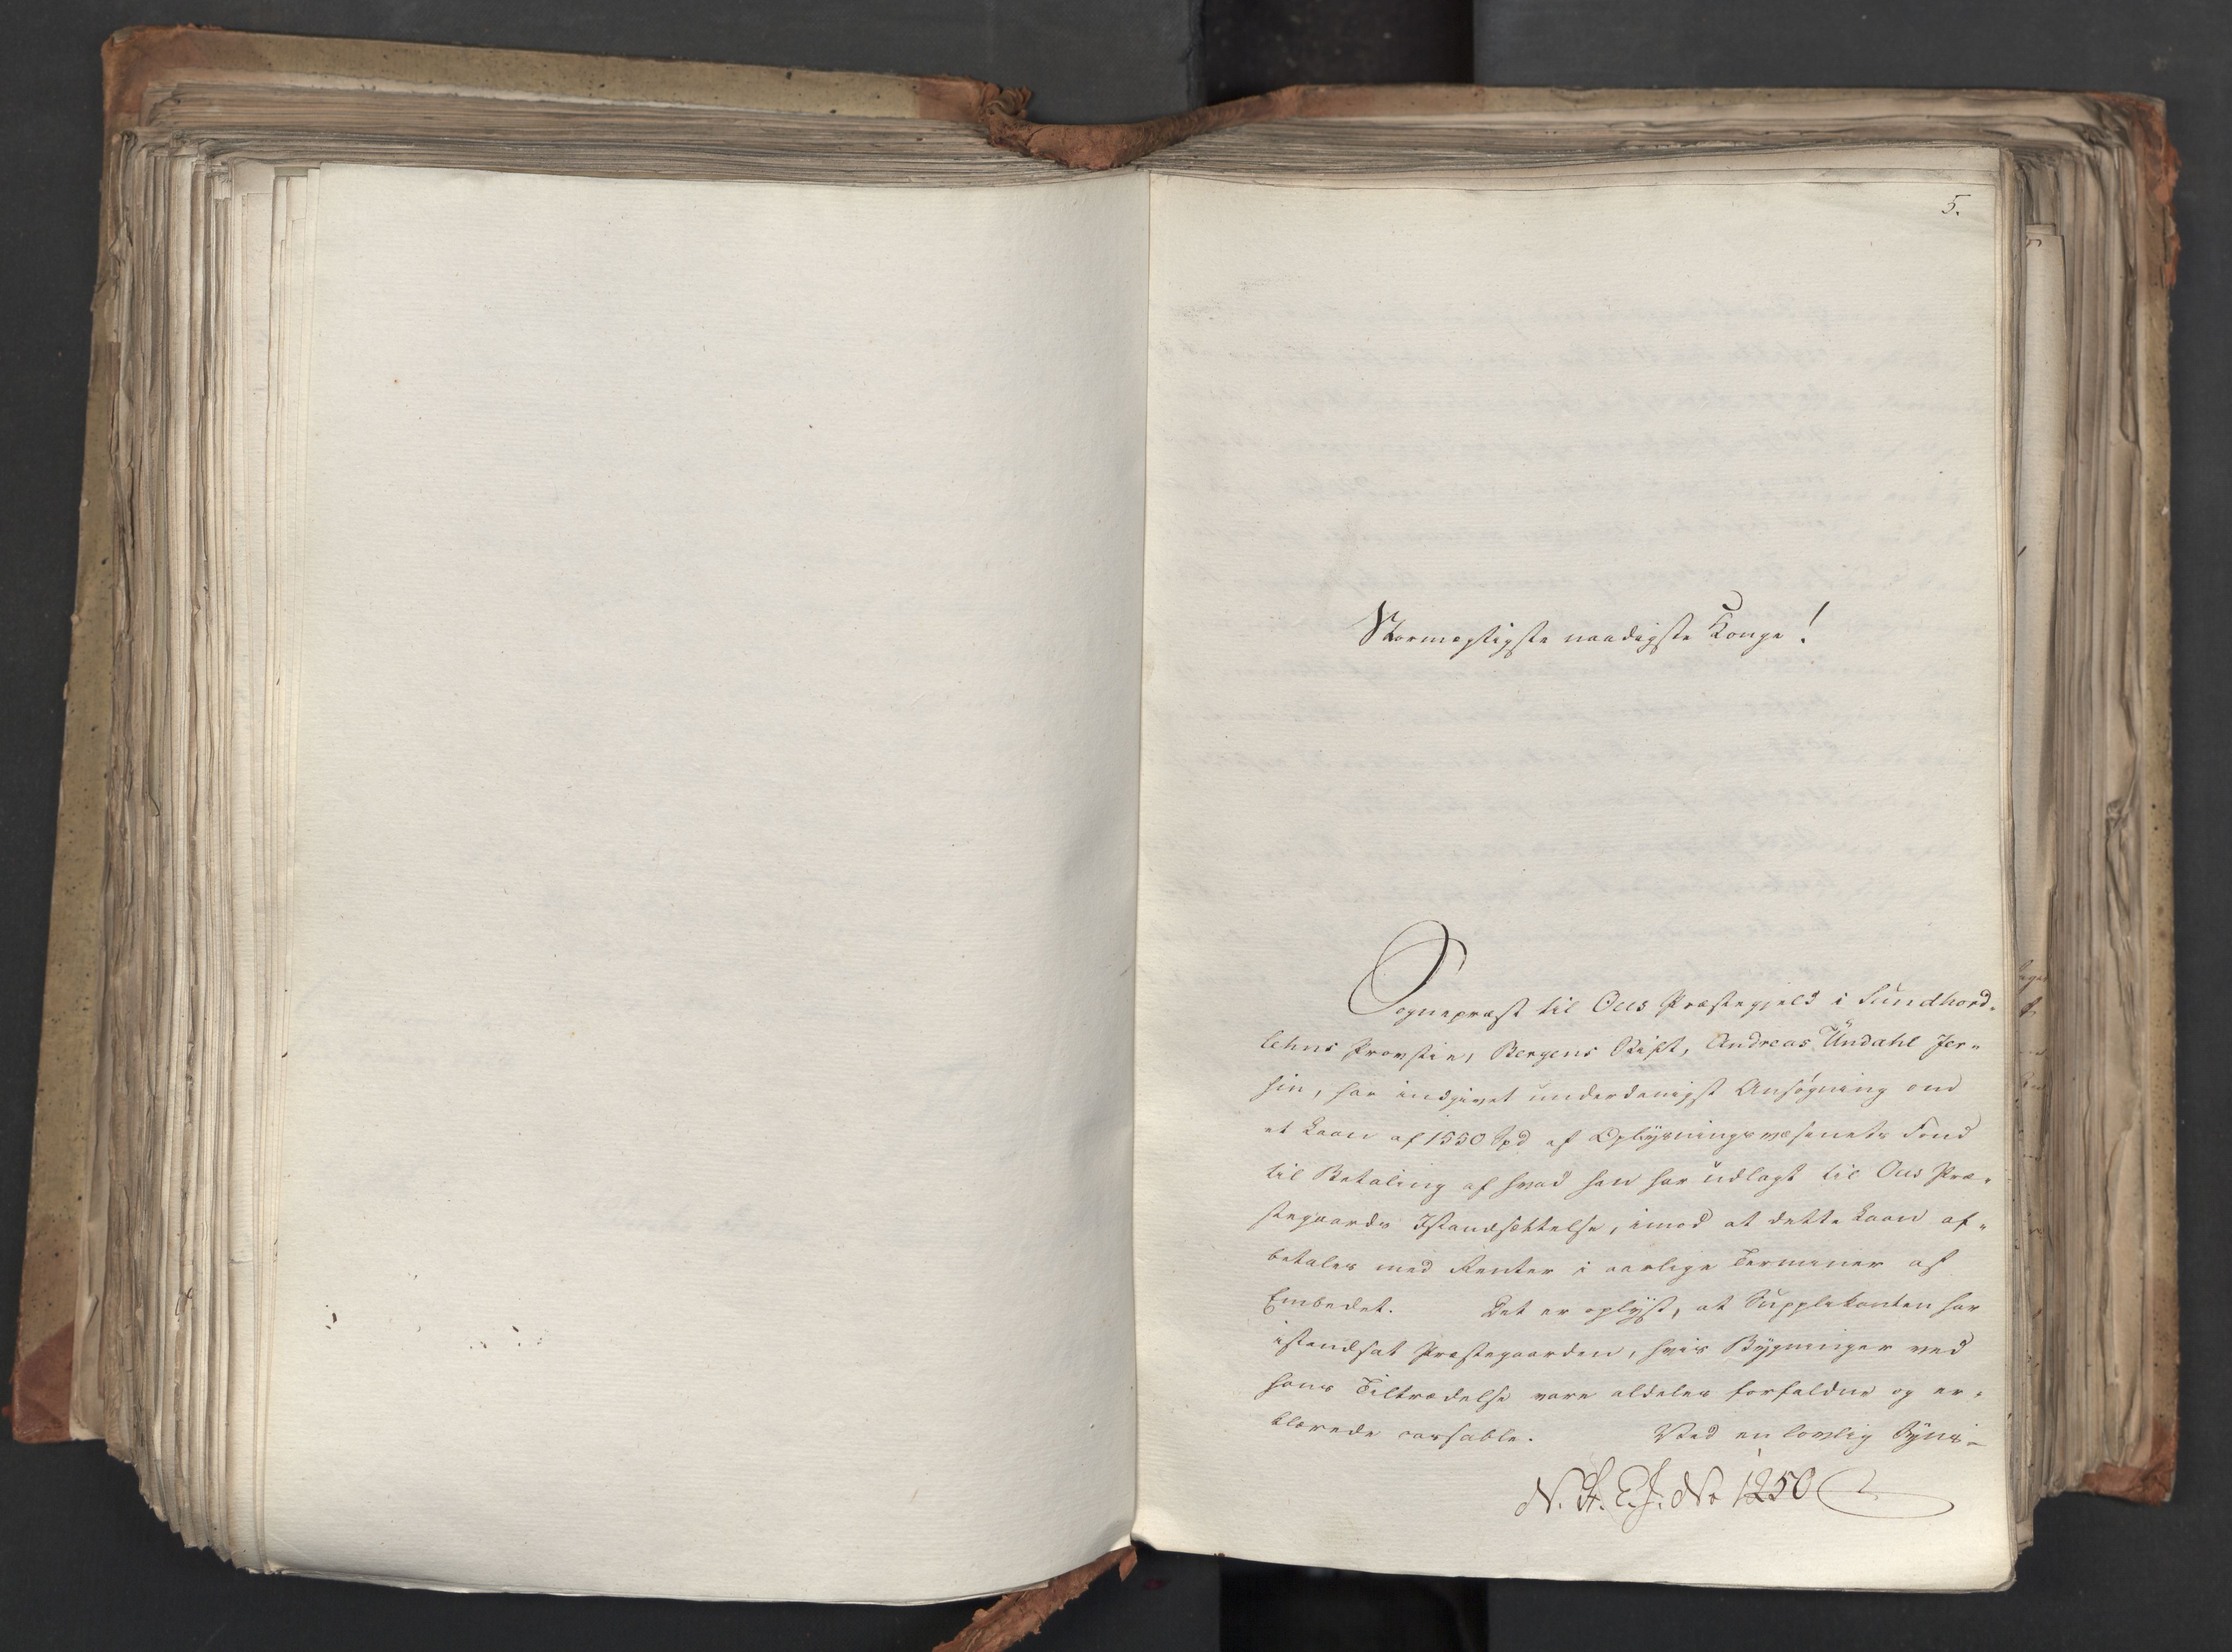 5.
Stormægtigste naadigste Konge!
Sognepræst til Ous Præstegjeld i Sundhord-
lehns Provstie, Bergens Stift, Andreas Undahl Jer-
sin, har indgivet underdanigst Ansøgning om
et Laan af 1550 Spd af Oplysningsvæsenets Fond
til Betaling af hvad han har udlagt til Ous Præ-
stegaards Istandsættelse, imod at dette Laan af-
betales med Renter i aarlige Terminer af
Embedet. Det er oplyst, at Supplikanten har
istandsat Præstegaarden, hvis Bygninger ved
hans Tiltrædelse vare aldeles forfaldne og er-
klærede cassable. Ved en lovlig Syns-
N. St. E. J. No 1250